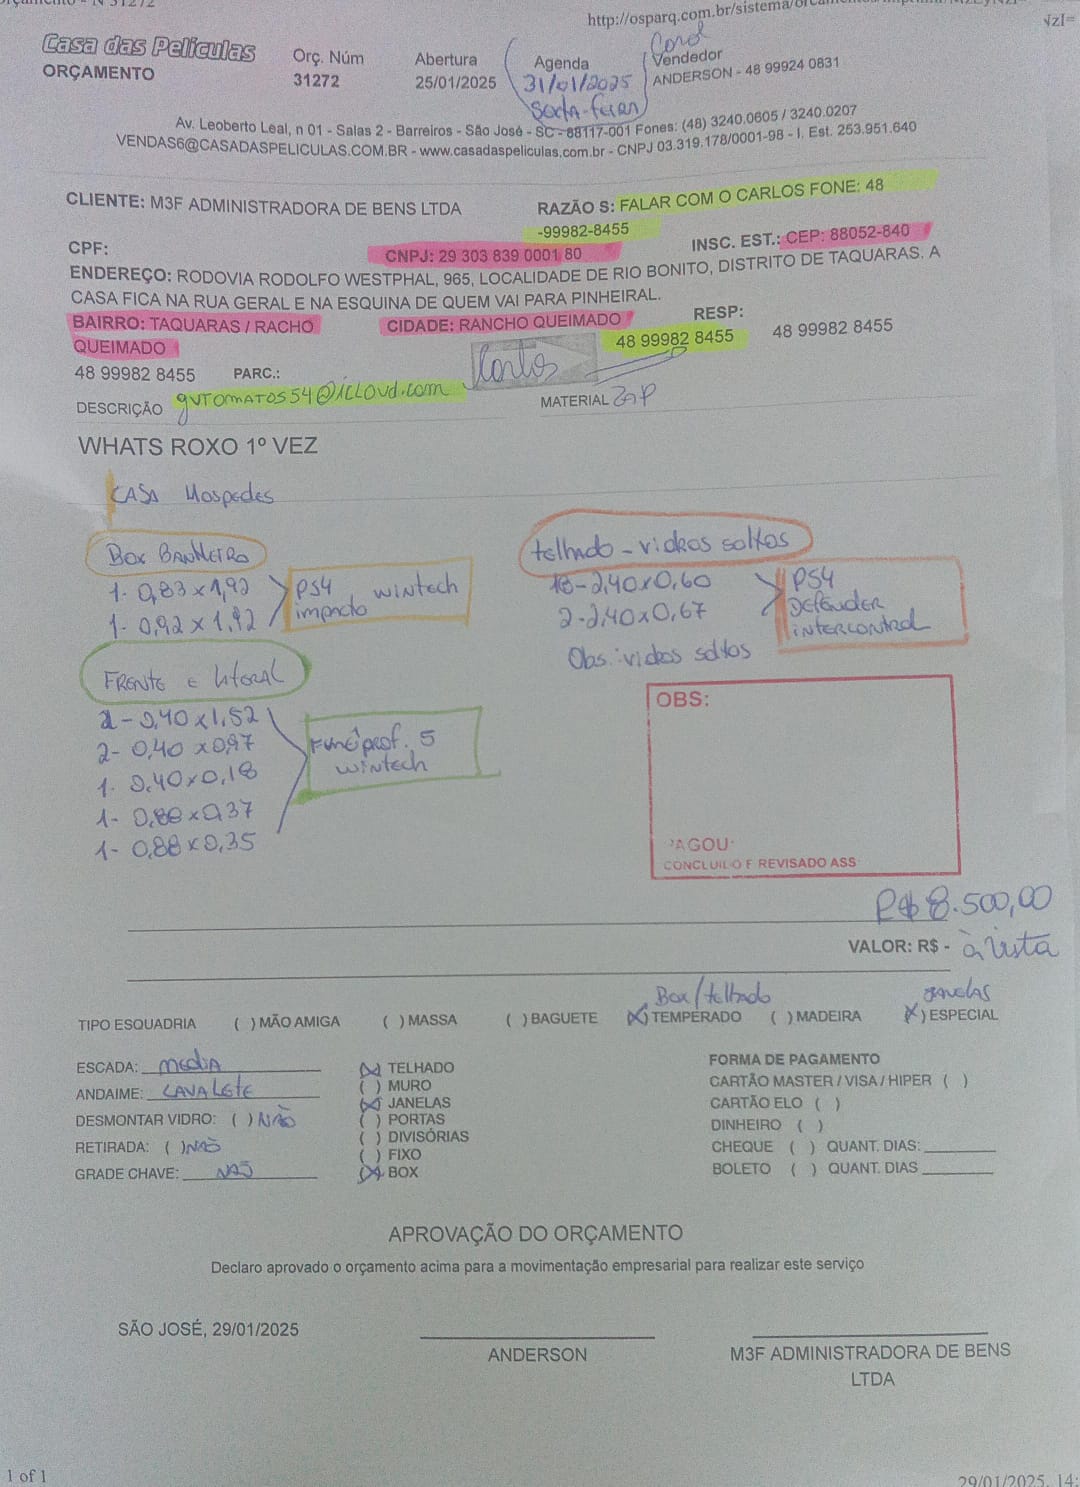 http://osparq.com.br/sistema/
Casa das Películas
ORÇAMENTO
Orç. Núm
31272
Abertura
25/01/2025
Agenda
31/01/2025
sexta-feira
Carol
Vendedor
ANDERSON - 48 99924 0831
Av. Leoberto Leal, n 01 - Salas 2 - Barreiros - São José - SC - 88117-001 Fones: (48) 3240.0605 / 3240.0207
VENDAS6@CASADASPELICULAS.COM.BR - www.casadaspeliculas.com.br - CNPJ 03.319.178/0001-98 - I. Est. 253.951.640
CLIENTE: M3F ADMINISTRADORA DE BENS LTDA
RAZÃO S: FALAR COM O CARLOS FONE: 48
-99982-8455
CPF:
CNPJ: 29 303 839 0001 80
INSC. EST.: CEP: 88052-840
ENDEREÇO: RODOVIA RODOLFO WESTPHAL, 965, LOCALIDADE DE RIO BONITO, DISTRITO DE TAQUARAS. A
CASA FICA NA RUA GERAL E NA ESQUINA DE QUEM VAI PARA PINHEIRAL.
BAIRRO: TAQUARAS / RACHO
QUEIMADO
CIDADE: RANCHO QUEIMADO
RESP:
48 99982 8455
48 99982 8455
48 99982 8455
PARC.:
Carlos
DESCRIÇÃO
gutomatos54@icloud.com
MATERIAL ZAP
WHATS ROXO 1º VEZ
CASA Hospedes
Box BANHEIRO
1- 0,83 x 1,92
1- 0,92 x 1,92
PS4 wintech
impacto
telhado - vidros soltos
18 - 2,40 x 0,60
2 - 2,40 x 0,67
PS4
DEFENDER
INTERCONTROL
Obs.: vidros soltos
FRENTE E LATERAL
2 - 0,40 x 1,52
2- 0,40 x 0,97
1- 0,40 x 0,18
1- 0,88 x 0,37
1- 0,88 x 0,35
Fumê prof. 5
wintech
OBS:
PAGOU:
CONCLUIDO E REVISADO ASS
R$ 8.500,00
VALOR: R$ - à vista
Box/telhado
janelas
TIPO ESQUADRIA ( ) MÃO AMIGA ( ) MASSA ( ) BAGUETE (X) TEMPERADO ( ) MADEIRA (X) ESPECIAL
ESCADA: media
ANDAIME: CAVALETE
DESMONTAR VIDRO: ( ) NÃO
RETIRADA: ( ) NÃO
GRADE CHAVE: NÃO
(X) TELHADO
( ) MURO
(X) JANELAS
( ) PORTAS
( ) DIVISÓRIAS
( ) FIXO
(X) BOX
FORMA DE PAGAMENTO
CARTÃO MASTER / VISA / HIPER ( )
CARTÃO ELO ( )
DINHEIRO ( )
CHEQUE ( ) QUANT. DIAS:
BOLETO ( ) QUANT. DIAS
APROVAÇÃO DO ORÇAMENTO
Declaro aprovado o orçamento acima para a movimentação empresarial para realizar este serviço
SÃO JOSÉ, 29/01/2025
ANDERSON
M3F ADMINISTRADORA DE BENS
LTDA
1 of 1
29/01/2025, 14: